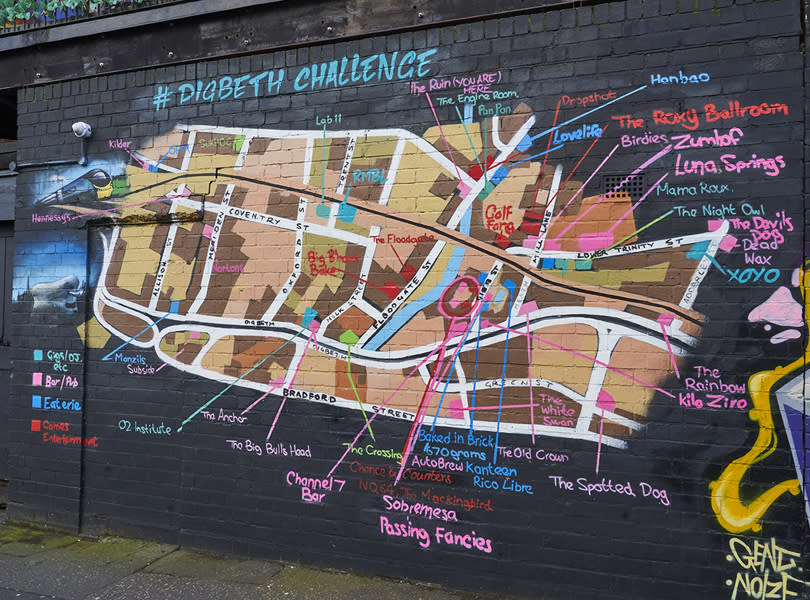 # DIGBETH CHALLENGE
The Ruin (YOU ARE)
HERE
The Engine Room
Pan Pan
Dropshot
Hanbao
Lab 11
Lovelife
The Roxy Ballroom
Birdies
Zumhof
Luna Springs
Mama Roux.
The Night Owl
The Devils
Dogs
Dead
Wax
XOYO
Kilder
RMBL
Hennessy's
COVENTRY ST
Golf
Fang
The Floodgate
Big B'ham
Bake
Nortons
MERIDEN ST
ALLISON ST
OXFORD
MILK STREET
FLOODGATE ST
RIVER ST
MILL LANE
LOWER TRINITY ST
ADDERLEY
DIGBETH
DIGBETH
BRADFORD STREET
GREEN ST
Gigs/DJ.
etc
Bar/Pub
Eaterie
Games
Entertainment
Monzils
Subside
O2 Institute
The Anchor
The Big Bulls Head
The Crossing
Channel 7
Bar
Chance & Counters
NQ64
The Mockingbird
Sobremesa
Passing Fancies
Baked in Brick
670grams
AutoBrew
Kanteen
Rico Libre
The Old Crown
The
White
Swan
The Spotted Dog
The
Rainbow
Kilo Ziro
GENT
NOIZE